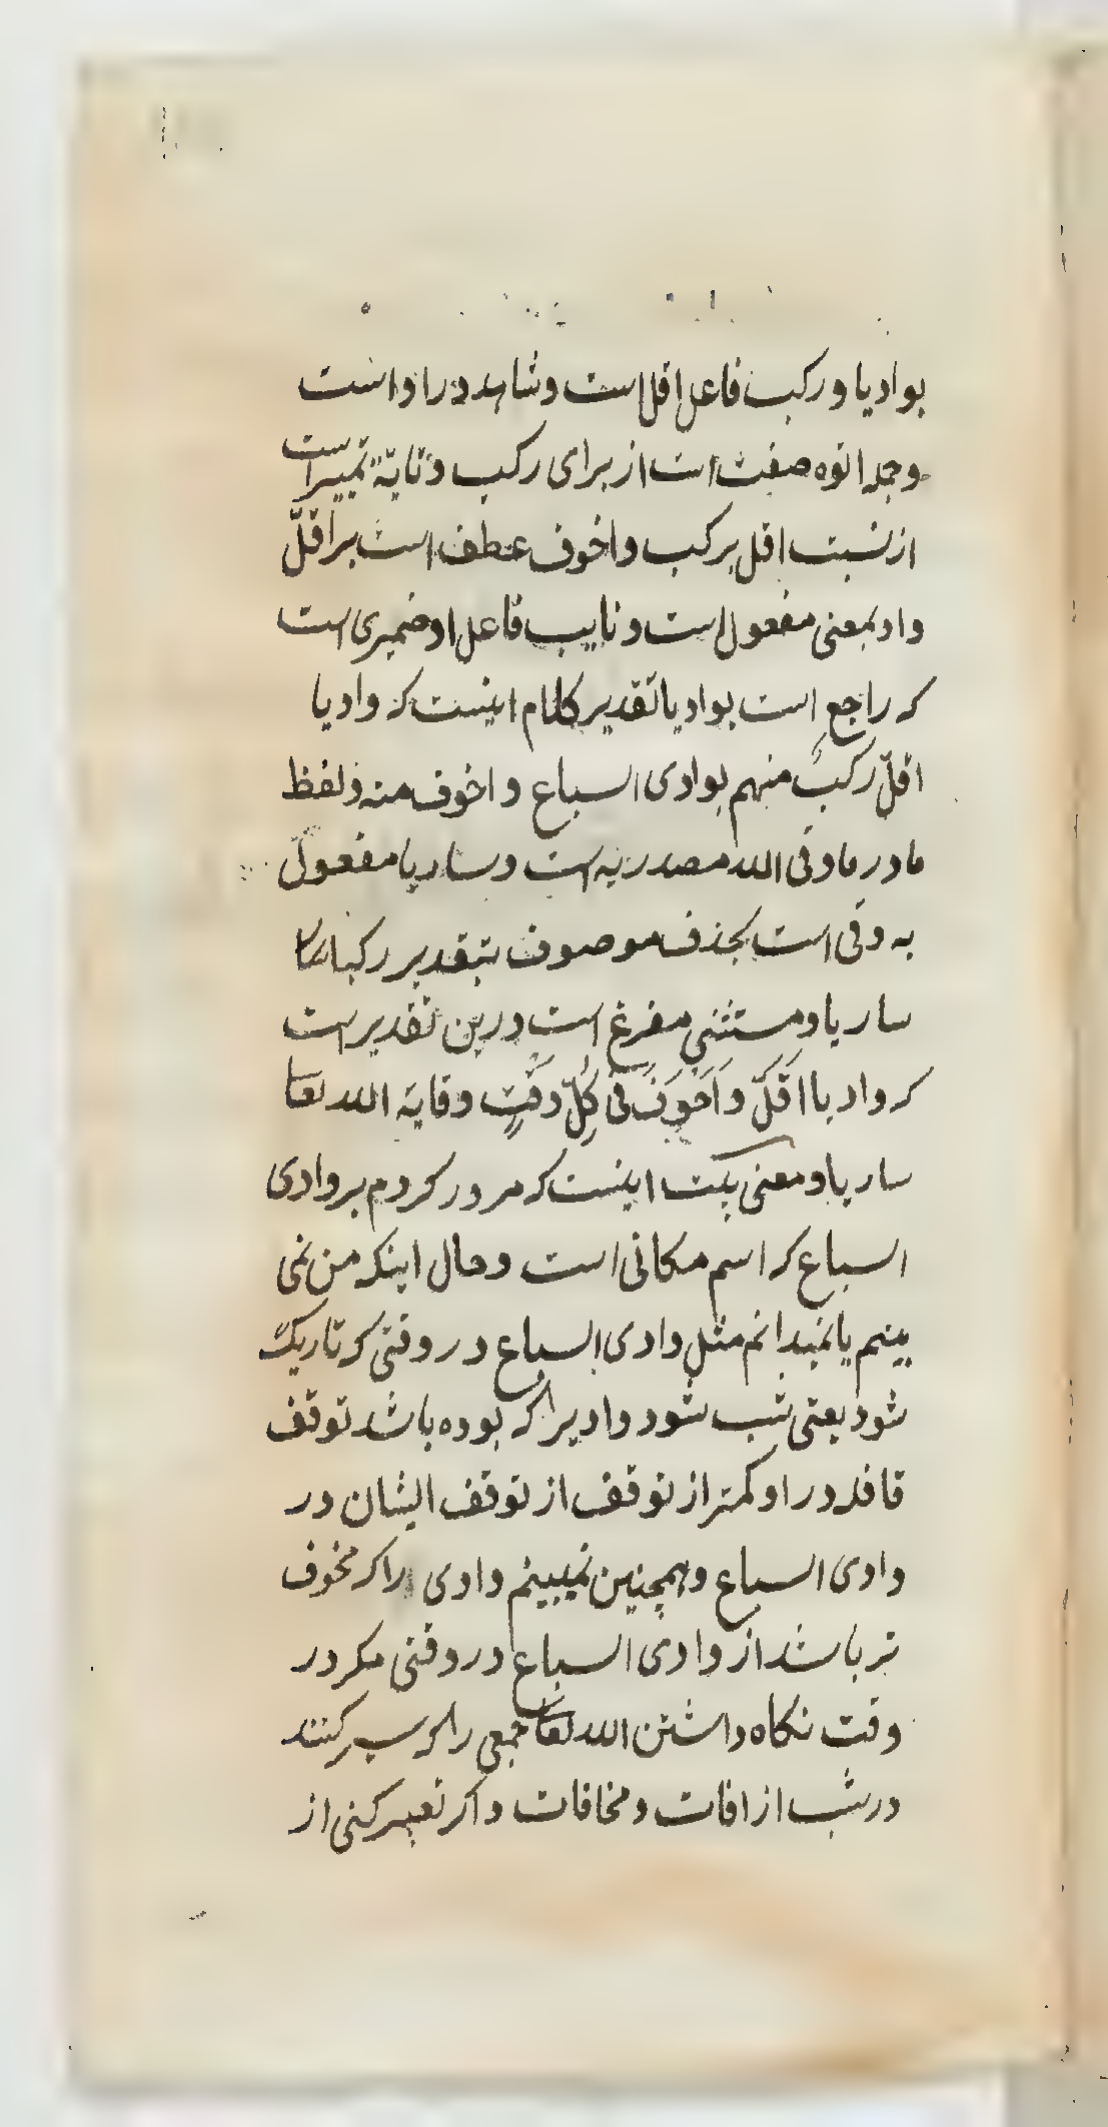 بوادیا و رکب فاعل اقل است و شاهد در او است
و جمله اتوه صفت است از برای رکب و تایّة تمییز است
از نسبت اقل برکب و اخوف عطف است بر اقلّ
و او بمعنی مفعول است و نایب فاعل او ضمیری است
که راجع است بوادیا تقدیر کلام اینست که وادیا
اقلّ رکبٌ منهم بوادی السباع و اخوف منه و لفظ
ما در ما وقی الله مصدریه است و ساریا مفعول
به وقی است بحذف موصوف بتقدیر رکبانا
ساریا و مستثنی مفرغ است و درین تقدیر است
که وادیا اَقَلَّ وَ اَخوَفَ فی کُلِّ وَقتٍ وقایة الله تعا
ساریا و معنی بیت اینست که مرور کردم بر وادی
السباع که اسم مکانی است و حال اینکه من نمی
بینم یا نمیدانم مثل وادی السباع در وقتی که تاریک
شود یعنی شب شود وادیرا که بوده باشد توقف
قافله در او کمتر از توقف از توقف ایشان در
وادی السباع و همچنین نمیبینم وادی را که مخوف
تر باشد از وادی السباع در وقتی مکر در
وقت نکاه داشتن الله تعا جمعی را که سیر کنند
در شب از افات و مخافات و اکر تعبیر کنی از